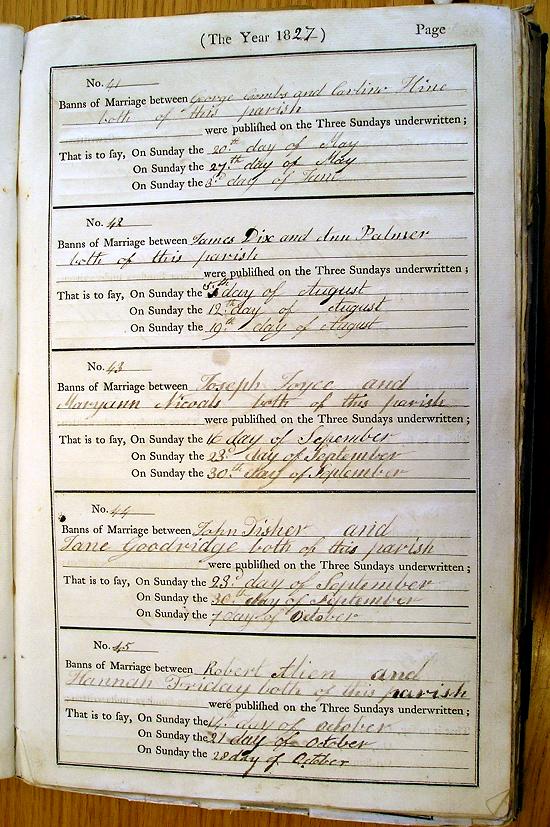 (The Year 1827)
Page
No. 41
Banns of Marriage between George Combs and Carline Hine
both of this parish
were published on the Three Sundays underwritten;
That is to say, On Sunday the 20th day of May
On Sunday the 27th day of May
On Sunday the 3d day of June
No. 42
Banns of Marriage between James Dix and Ann Palmer
both of this parish
were published on the Three Sundays underwritten;
That is to say, On Sunday the 5th day of August
On Sunday the 12th day of August
On Sunday the 19th day of August
No. 43
Banns of Marriage between Joseph Joyce and
Maryann Nicoals both of this parish
were published on the Three Sundays underwritten;
That is to say, On Sunday the 16 day of September
On Sunday the 23d day of September
On Sunday the 30th day of September
No. 44
Banns of Marriage between John Fisher and
Jane Goodridge both of this parish
were published on the Three Sundays underwritten;
That is to say, On Sunday the 23d day of September
On Sunday the 30th day of September
On Sunday the 7 day of October
No. 45
Banns of Marriage between Robert Alien and
Hannah Friday both of this parish
were published on the Three Sundays underwritten;
That is to say, On Sunday the day of October
On Sunday the 21 day of October
On Sunday the 28 day of October